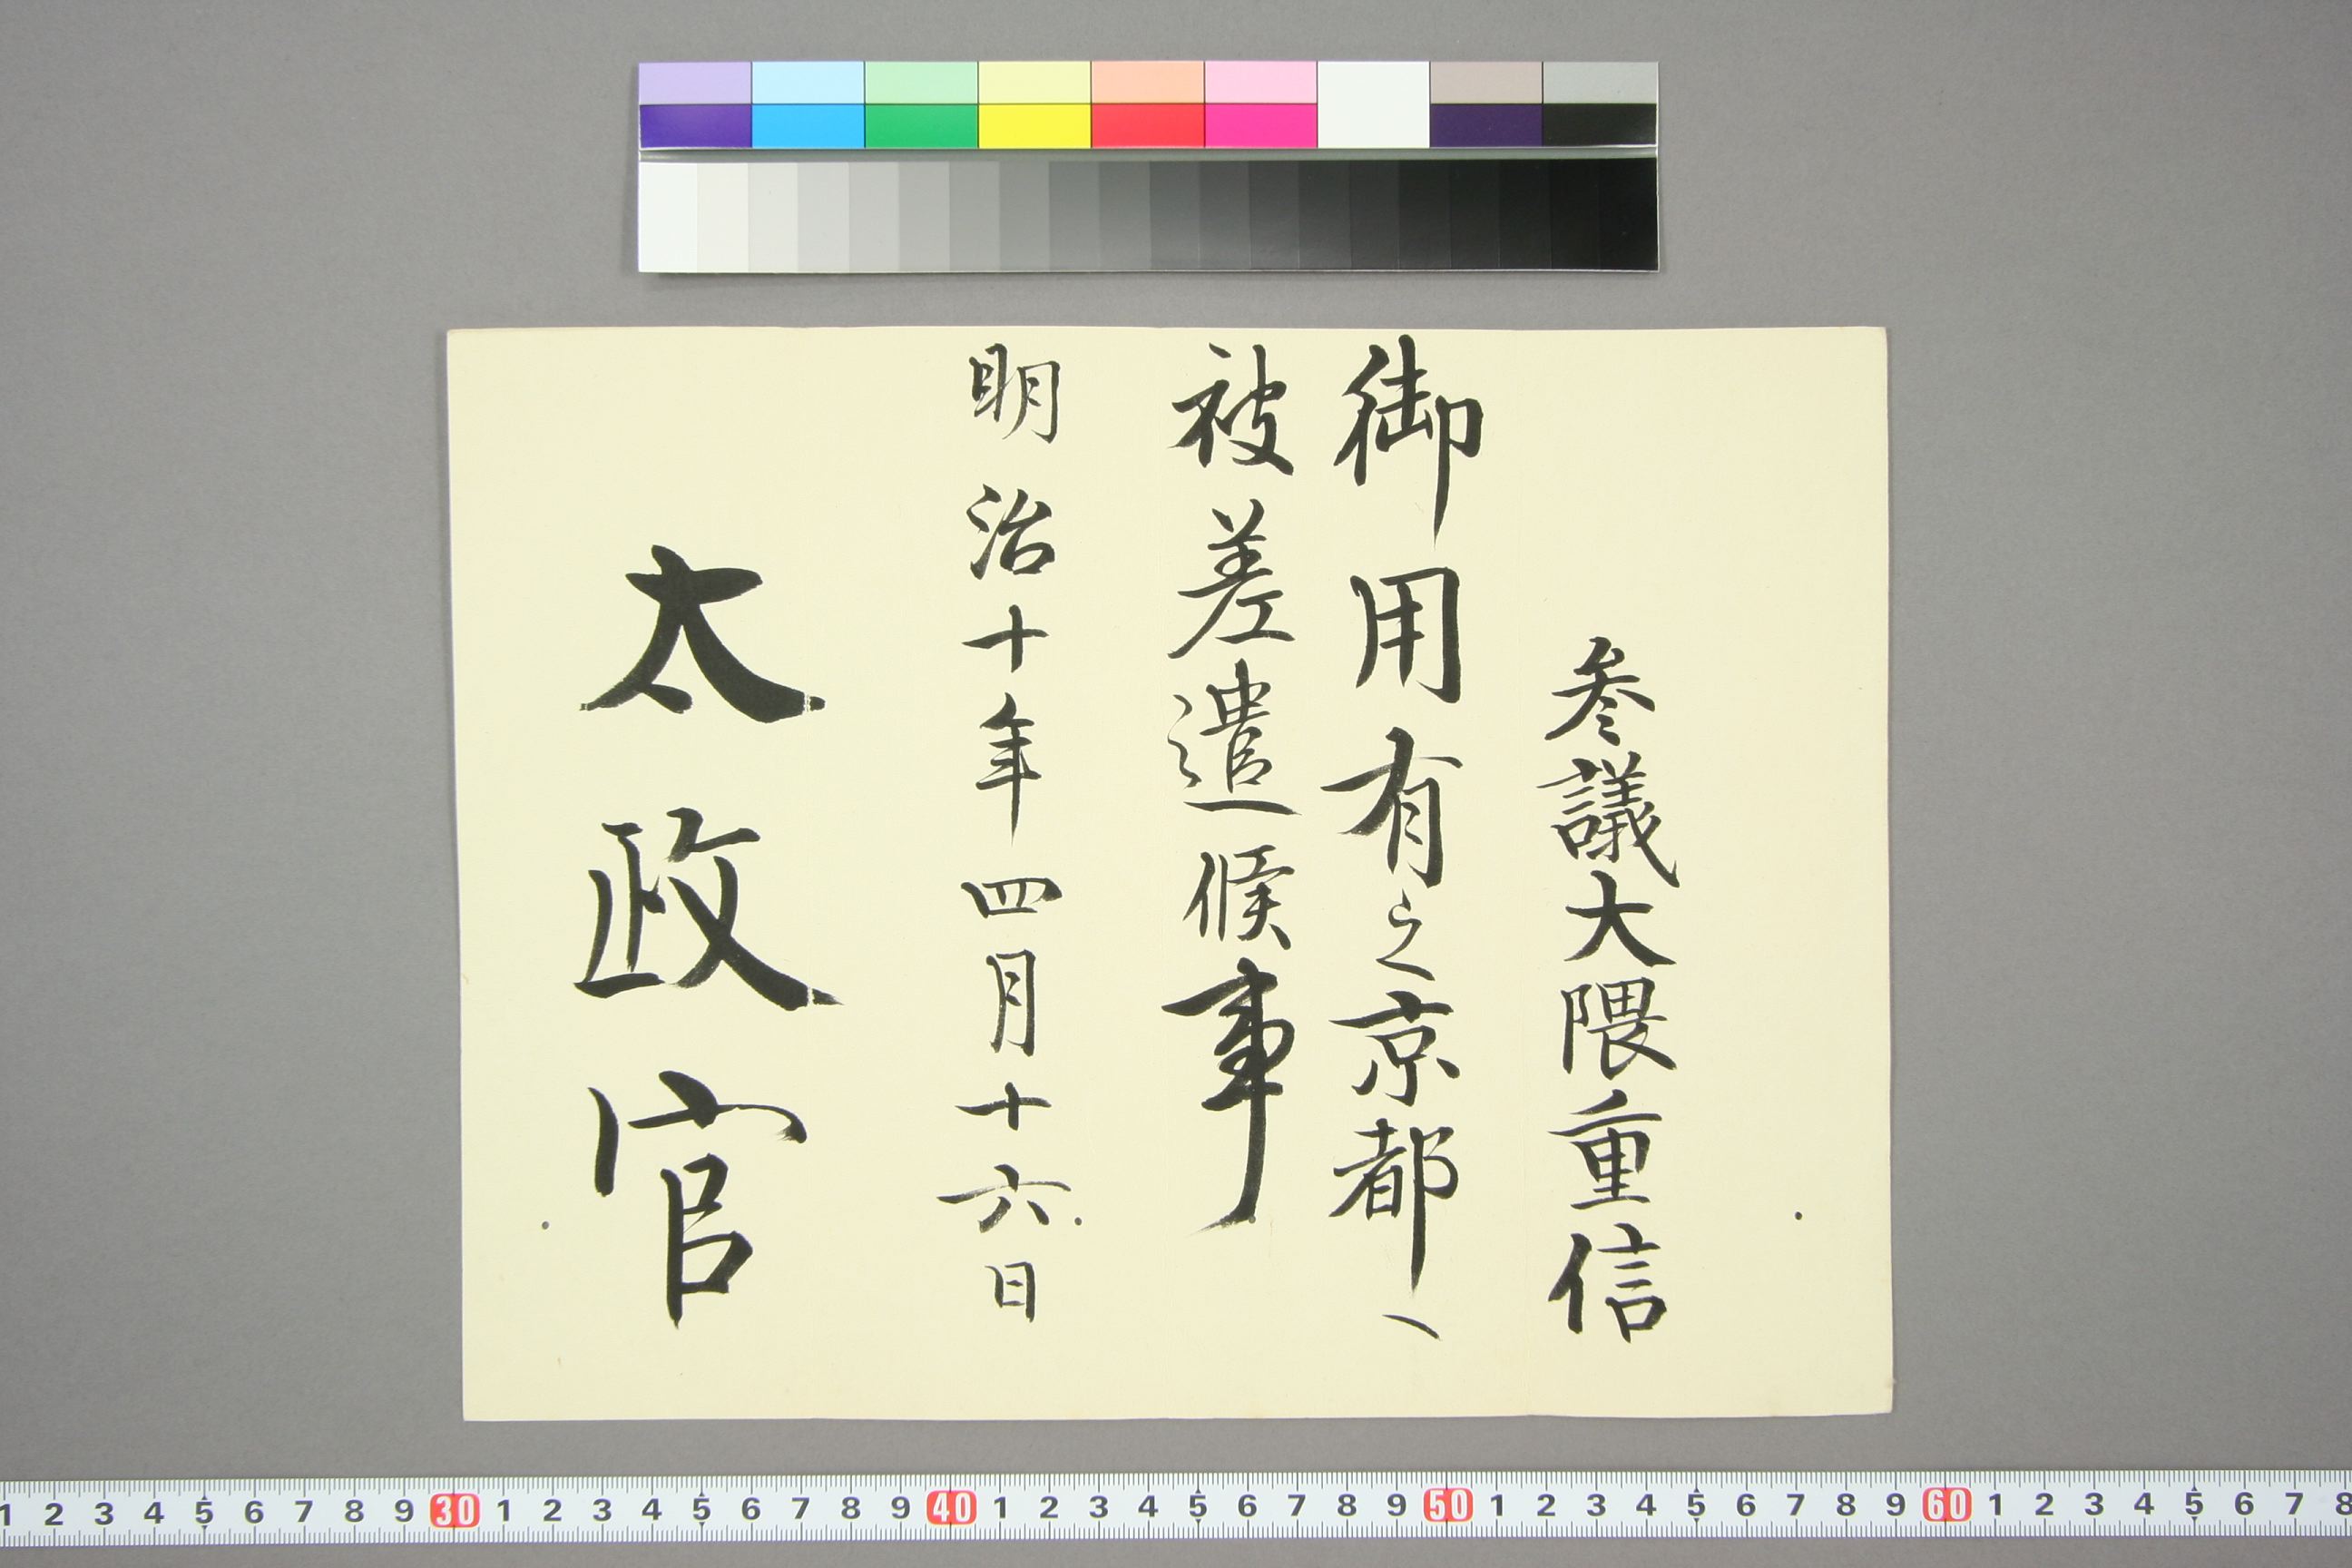 参議大隈重信
御用有之京都へ
被差遣候事
明治十年四月十六日
太政官
1 2 3 4 5 6 7 8 9 30 1 2 3 4 5 6 7 8 9 40 1 2 3 4 5 6 7 8 9 50 1 2 3 4 5 6 7 8 9 60 1 2 3 4 5 6 7 8